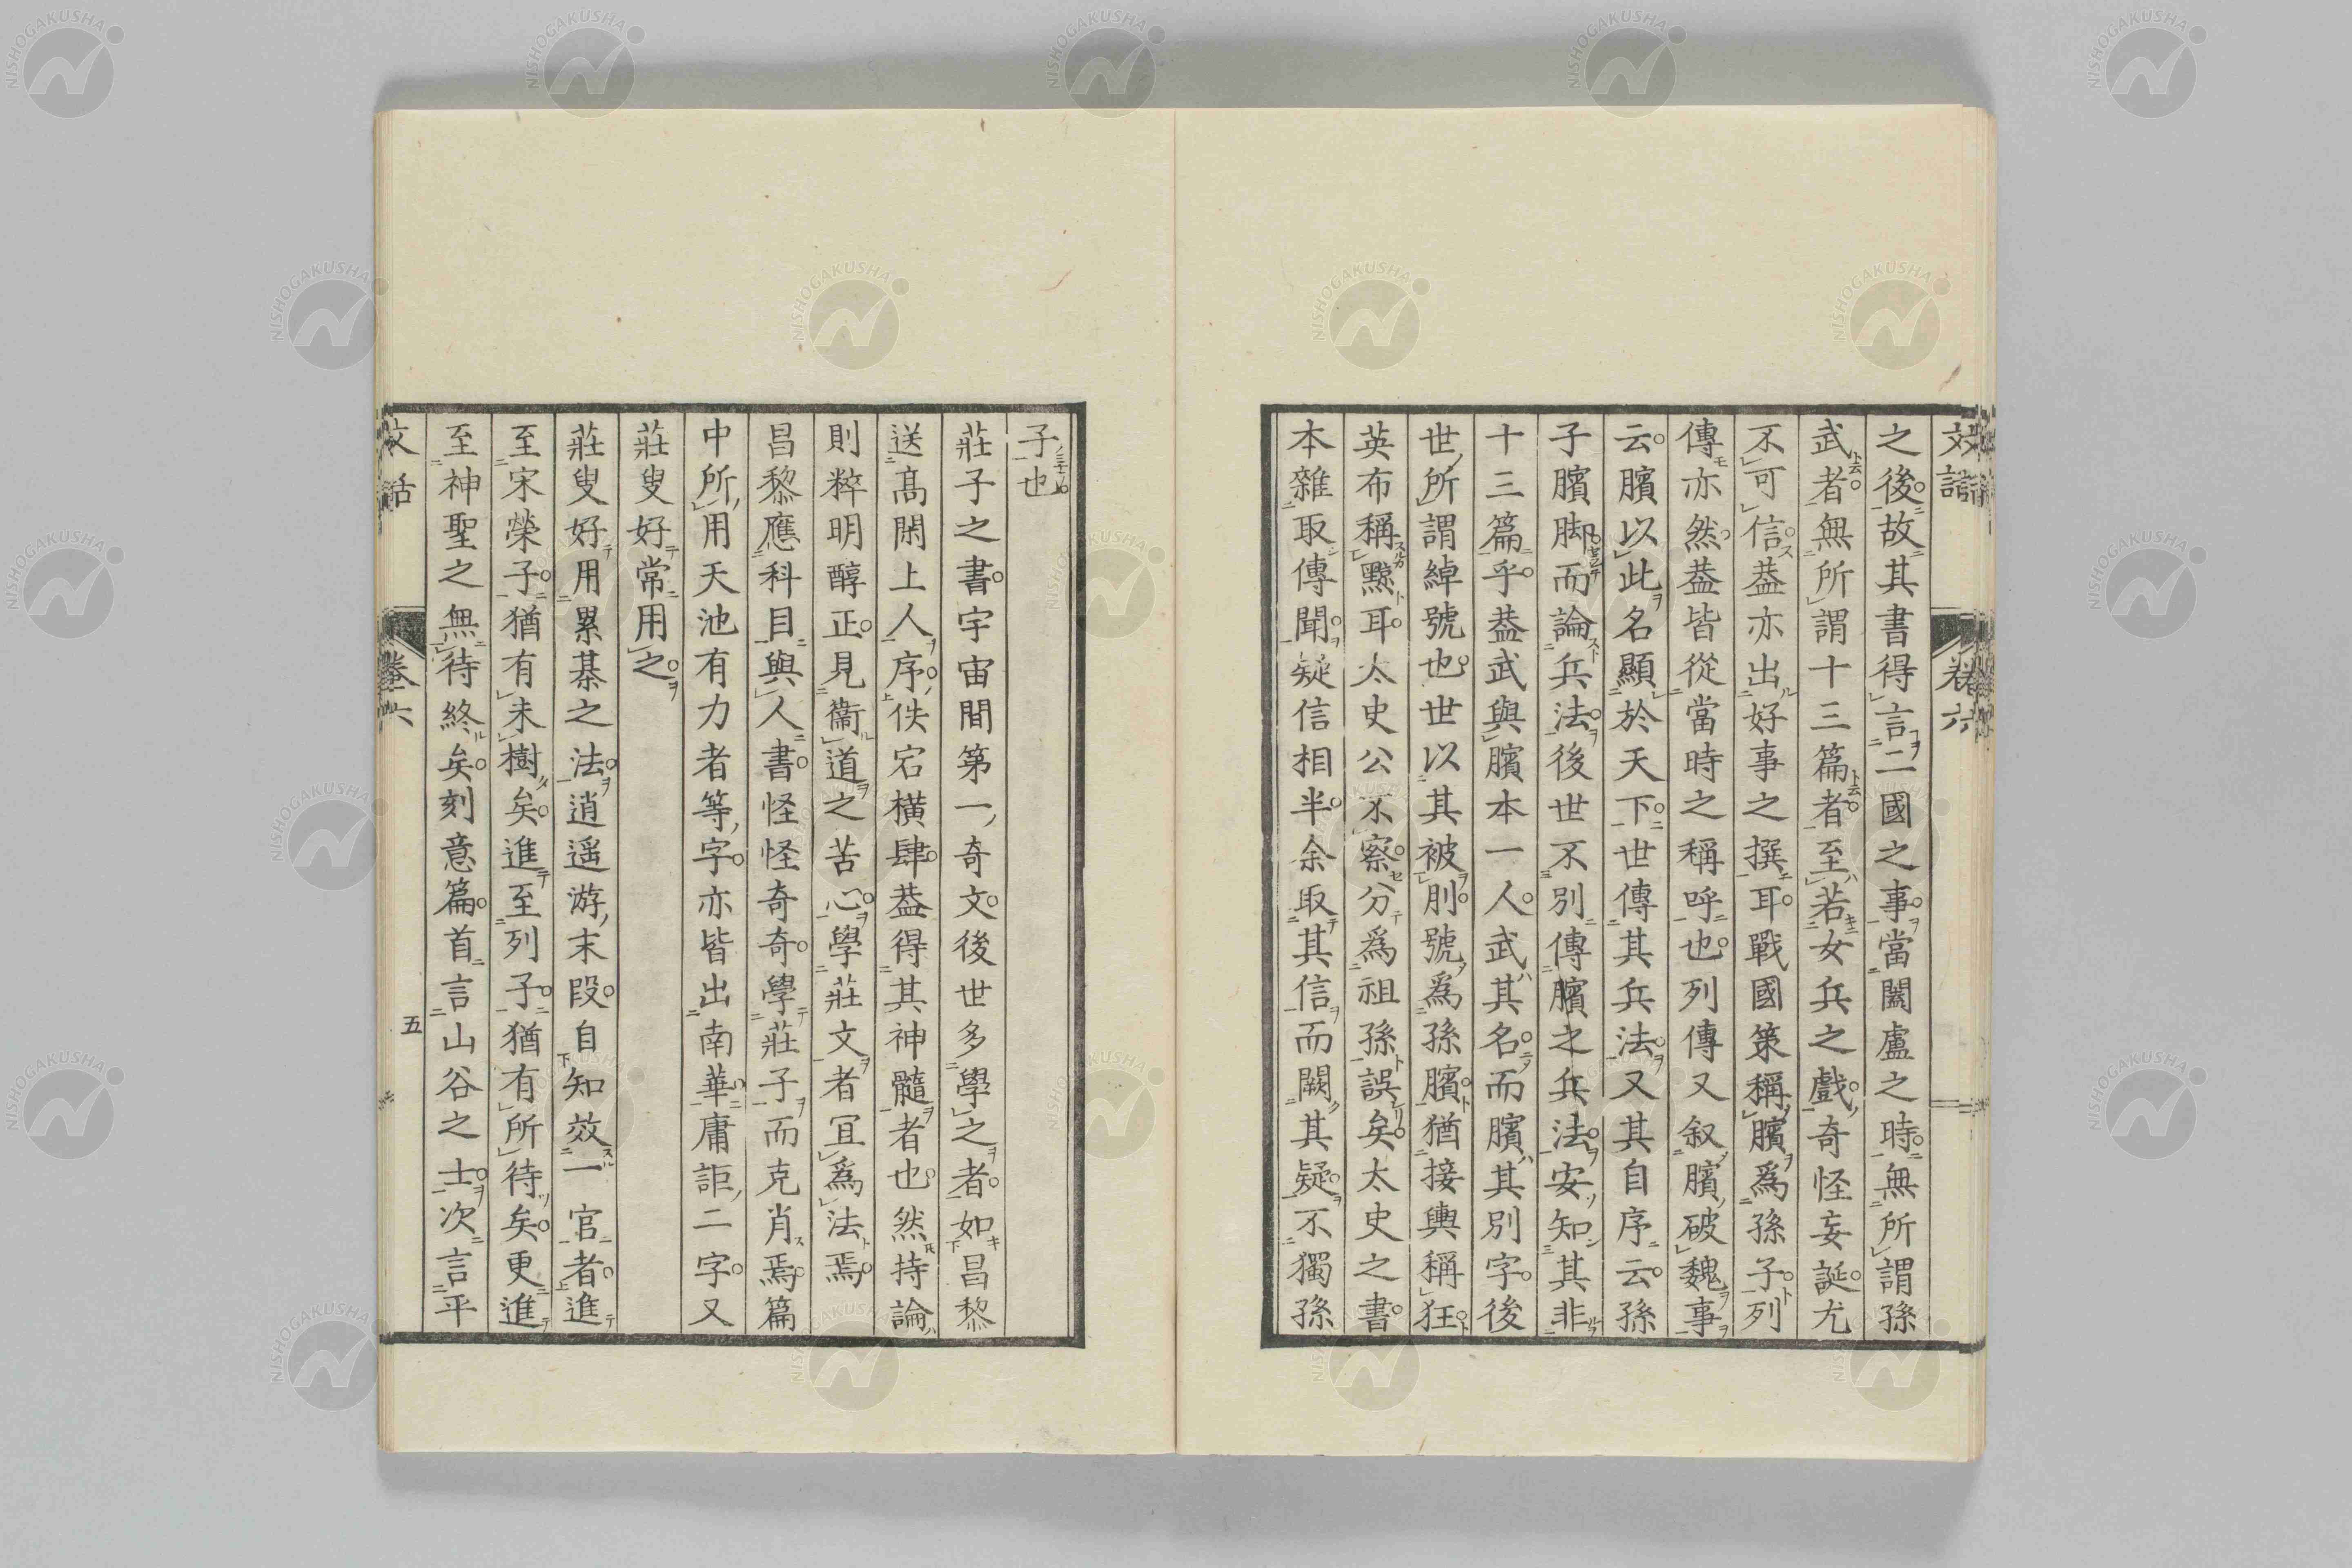 文話 卷六
之後故其書得言二國之事當闔盧之時無所謂孫
武者無所謂十三篇者至若女兵之戲奇怪妄誕尤
不可信葢亦出好事之撰耳戰國策稱臏爲孫子列
傳亦然葢皆從當時之稱呼也列傳又叙臏破魏事
云臏以此名顯於天下世傳其兵法又其自序云孫
子臏脚而論兵法後世不別傳臏之兵法安知其非
十三篇乎葢武與臏本一人武其名而臏其別字後
世所謂綽號也世以其被刖號爲孫臏猶接輿稱狂
英布稱黥耳太史公不察分爲祖孫誤矣太史之書
本雜取傳聞疑信相半余取其信而闕其疑不獨孫
子也
莊子之書宇宙間第一奇文後世多學之者如昌黎
送高閑上人序佚宕橫肆葢得其神髓者也然持論
則粹明醇正見衞道之苦心學莊文者宜爲法焉
昌黎應科目與人書怪怪奇奇學莊子而克肖焉篇
中所用天池有力者等字亦皆出南華庸詎二字又
莊叟好常用之
莊叟好用累棊之法逍遥游末段自知效一官者進
至宋榮子猶有未樹矣進至列子猶有所待矣更進
至神聖之無待終矣刻意篇首言山谷之士次言平
文話 卷六 五
NISHOGAKUSHA